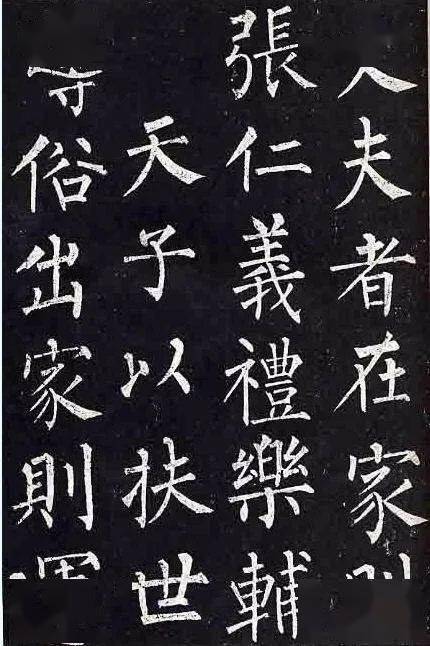 夫者在家
張仁義禮樂輔
天子以扶世
俗出家則